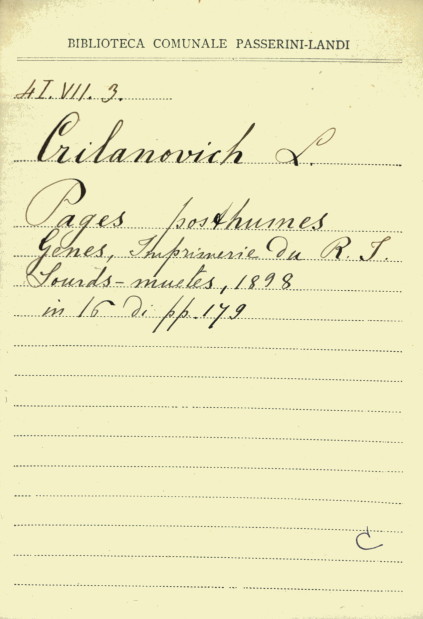 BIBLIOTECA COMUNALE PASSERINI-LANDI
4I.VII.3.
Crilanovich L.
Pages posthumes
Gênes, Imprimerie du R. I.
Sourds-muets, 1898
in 16 di pp. 179
C